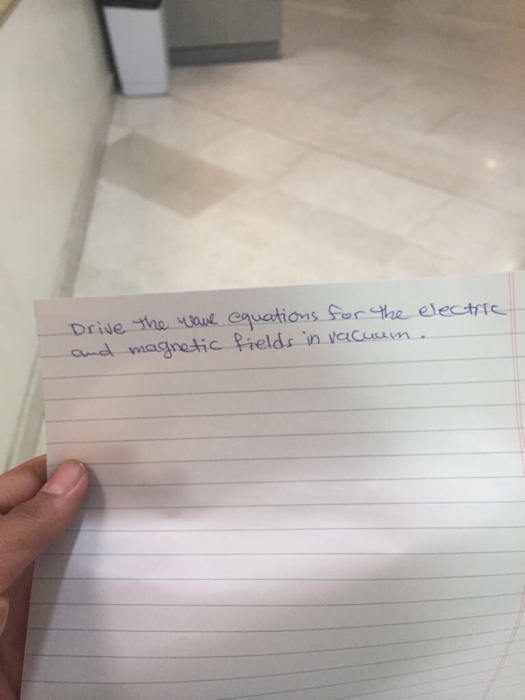 Drive the wave equations for the electric
and magnetic fields in vacuum.